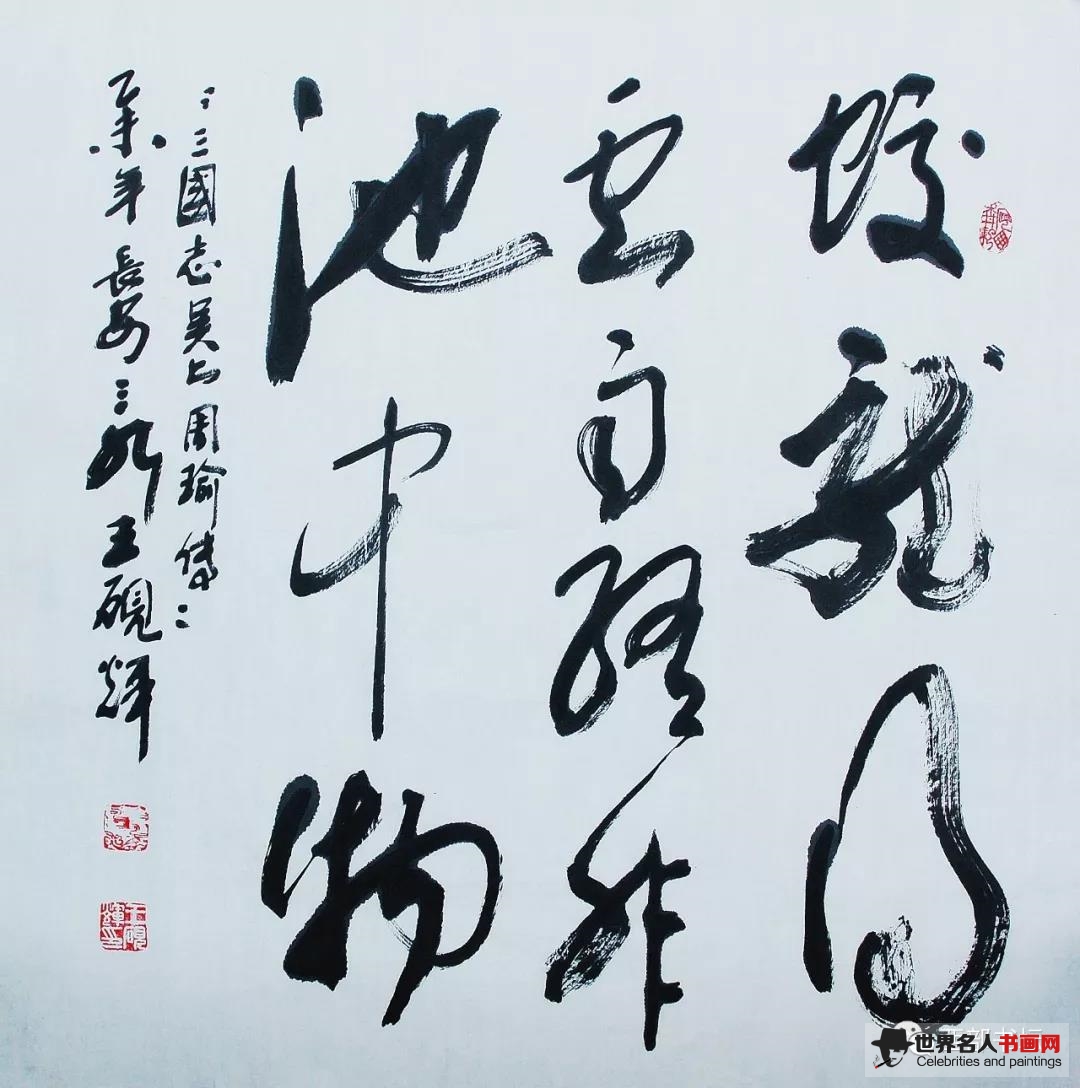 蛟龍得
云雨終非
池中物
三國志吴书周瑜傳
乙未年長安王硯輝
王硯輝印
世界名人书画网
Celebrities and paintings